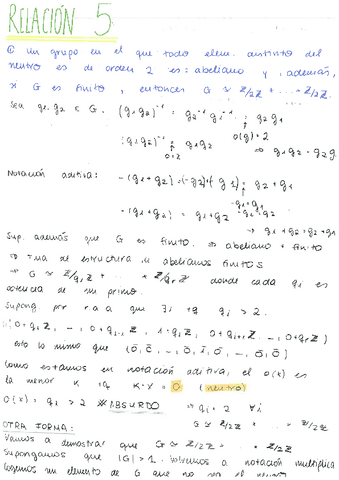 RELACIÓN 5
① Un grupo en el que todo elem. distinto del
neutro es de orden 2 es: abeliano y, además,
si G es finito, entonces G ≃ Z/2Z × ... × Z/2Z.
Sea g₁, g₂ ∈ G. (g₁g₂)⁻¹ = g₂⁻¹ g₁⁻¹ = g₂g₁
o(g)=2
(g₁g₂)⁻¹ = g₁g₂ ⇒ g₁g₂ = g₂g₁
o=2
Notación aditiva: -(g₁+g₂) = (-g₂)+(-g₁) = g₂+g₁
-(g₁+g₂) = g₁+g₂
⇒ g₁+g₂ = g₂+g₁
Sup. además que G es finito. ⇒ abeliano + finito
⇒ Tma de estructura de abelianos finitos
⇒ G ≃ Z/q₁Z × ... × Z/qᵣZ donde cada qᵢ es
potencia de un primo.
Supong por r a a que ∃ i tq qᵢ > 2.
(0+q₁Z, ..., 0+qᵢ₋₁Z, 1+qᵢZ, 0+qᵢ₊₁Z, ..., 0+qᵣZ)
Esto lo mismo que (0̄, 0̄, ..., 0̄, 1̄, 0̄, ..., 0̄, 0̄)
Como estamos en notación aditiva, el o(x) es
la menor k tq k·x = 0 (neutro)
o(x) = qᵢ > 2 ※ ABSURDO ⇒ qᵢ = 2 ∀i
G ≃ Z/2Z × ... × Z/2Z
OTRA FORMA:
Vamos a demostrar que G ≃ Z/2Z × ... × Z/2Z
Supongamos que |G| > 1. Volvemos a notación multiplica
Cogemos un elemento de G que no sea el neutro